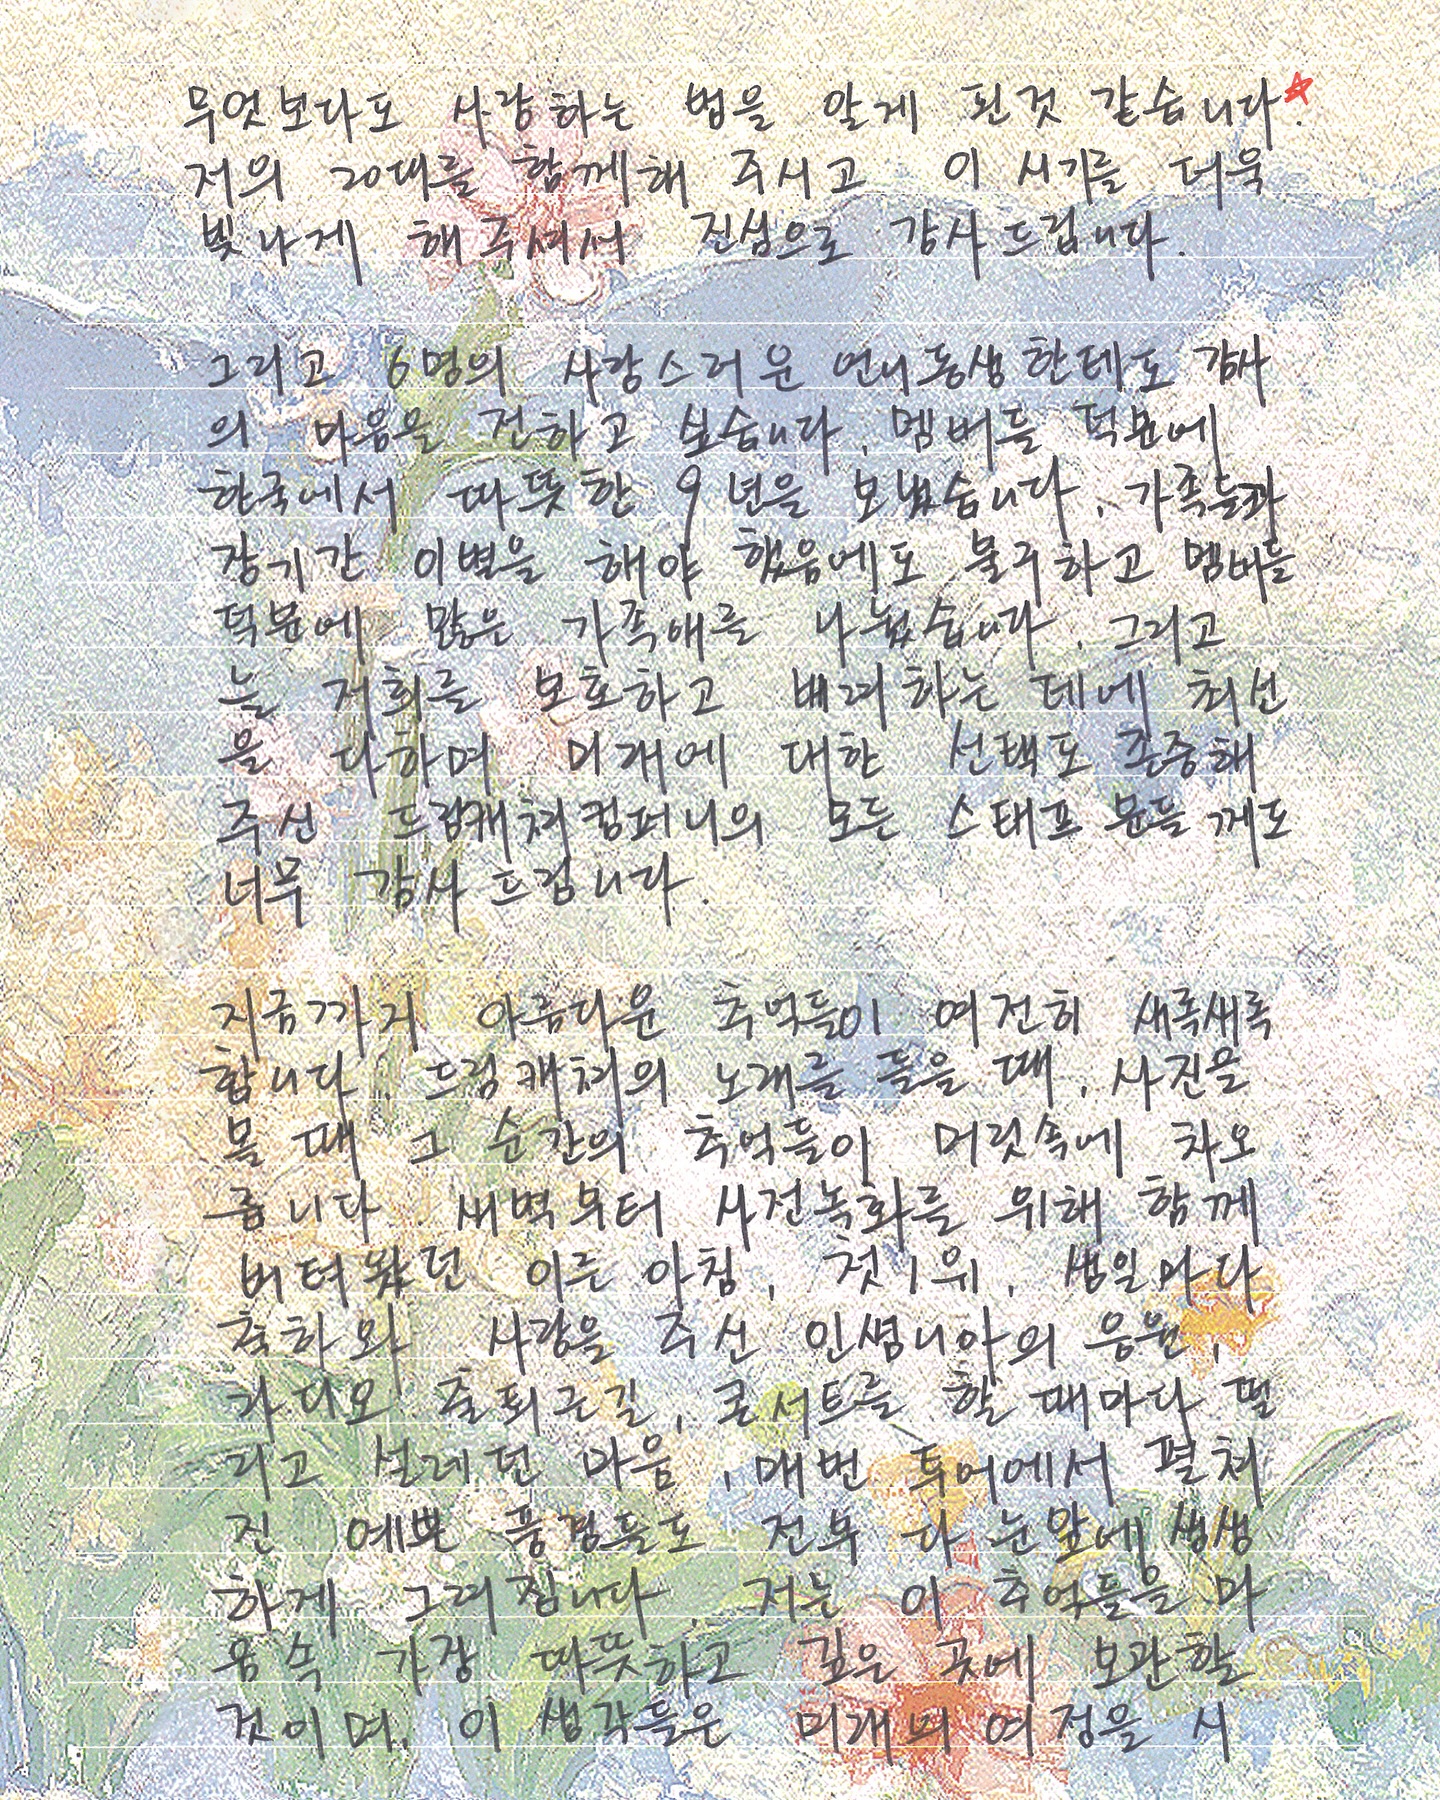 무엇보다도 사랑하는 법을 알게 된것 같습니다.
저의 20대를 함께해 주시고 이 시기를 더욱
빛나게 해주셔서 진심으로 감사드립니다.
그리고 6명의 사랑스러운 언니동생한테도 감사
의 마음을 전하고 싶습니다. 멤버들 덕분에
한국에서 따뜻한 9년을 보냈습니다. 가족들과
장기간 이별을 해야 했음에도 불구하고 멤버들
덕분에 많은 가족애를 나눴습니다. 그리고
늘 저희를 보호하고 배려하는 데에 최선
을 다하며 미래에 대한 선택도 존중해
주신 드림캐쳐컴퍼니의 모든 스태프 분들께도
너무 감사드립니다.
지금까지 아름다운 추억들이 여전히 새록새록
합니다. 드림캐쳐의 노래를 들을 때, 사진을
볼 때 그 순간의 추억들이 머릿속에 차오
릅니다. 새벽부터 사전녹화를 위해 함께
버텨왔던 이른 아침, 첫 1위, 생일마다
축하와 사랑을 주신 인썸니아의 응원,
라디오 출퇴근길, 콘서트를 할 때마다 떨
리고 설레던 마음, 매번 투어에서 펼쳐
진 예쁜 풍경들도 전부 다 눈앞에 생생
하게 그려집니다. 저는 이 추억들을 마
음속 가장 따뜻하고 깊은 곳에 보관할
것이며, 이 생각들은 미래의 여정을 시